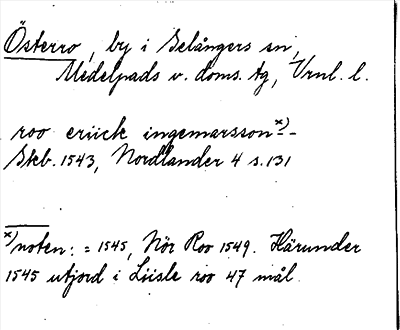 Österro, by i Selångers sn,
Medelpads v. doms. tg, Vrnl. l.
roo eriick ingemarsson x)-
Skb. 1543, Nordlander 4 s. 131
x) noten: = 1545, Nör Roo 1549. Härunder
1545 utjord i Liisle roo 47 mål.